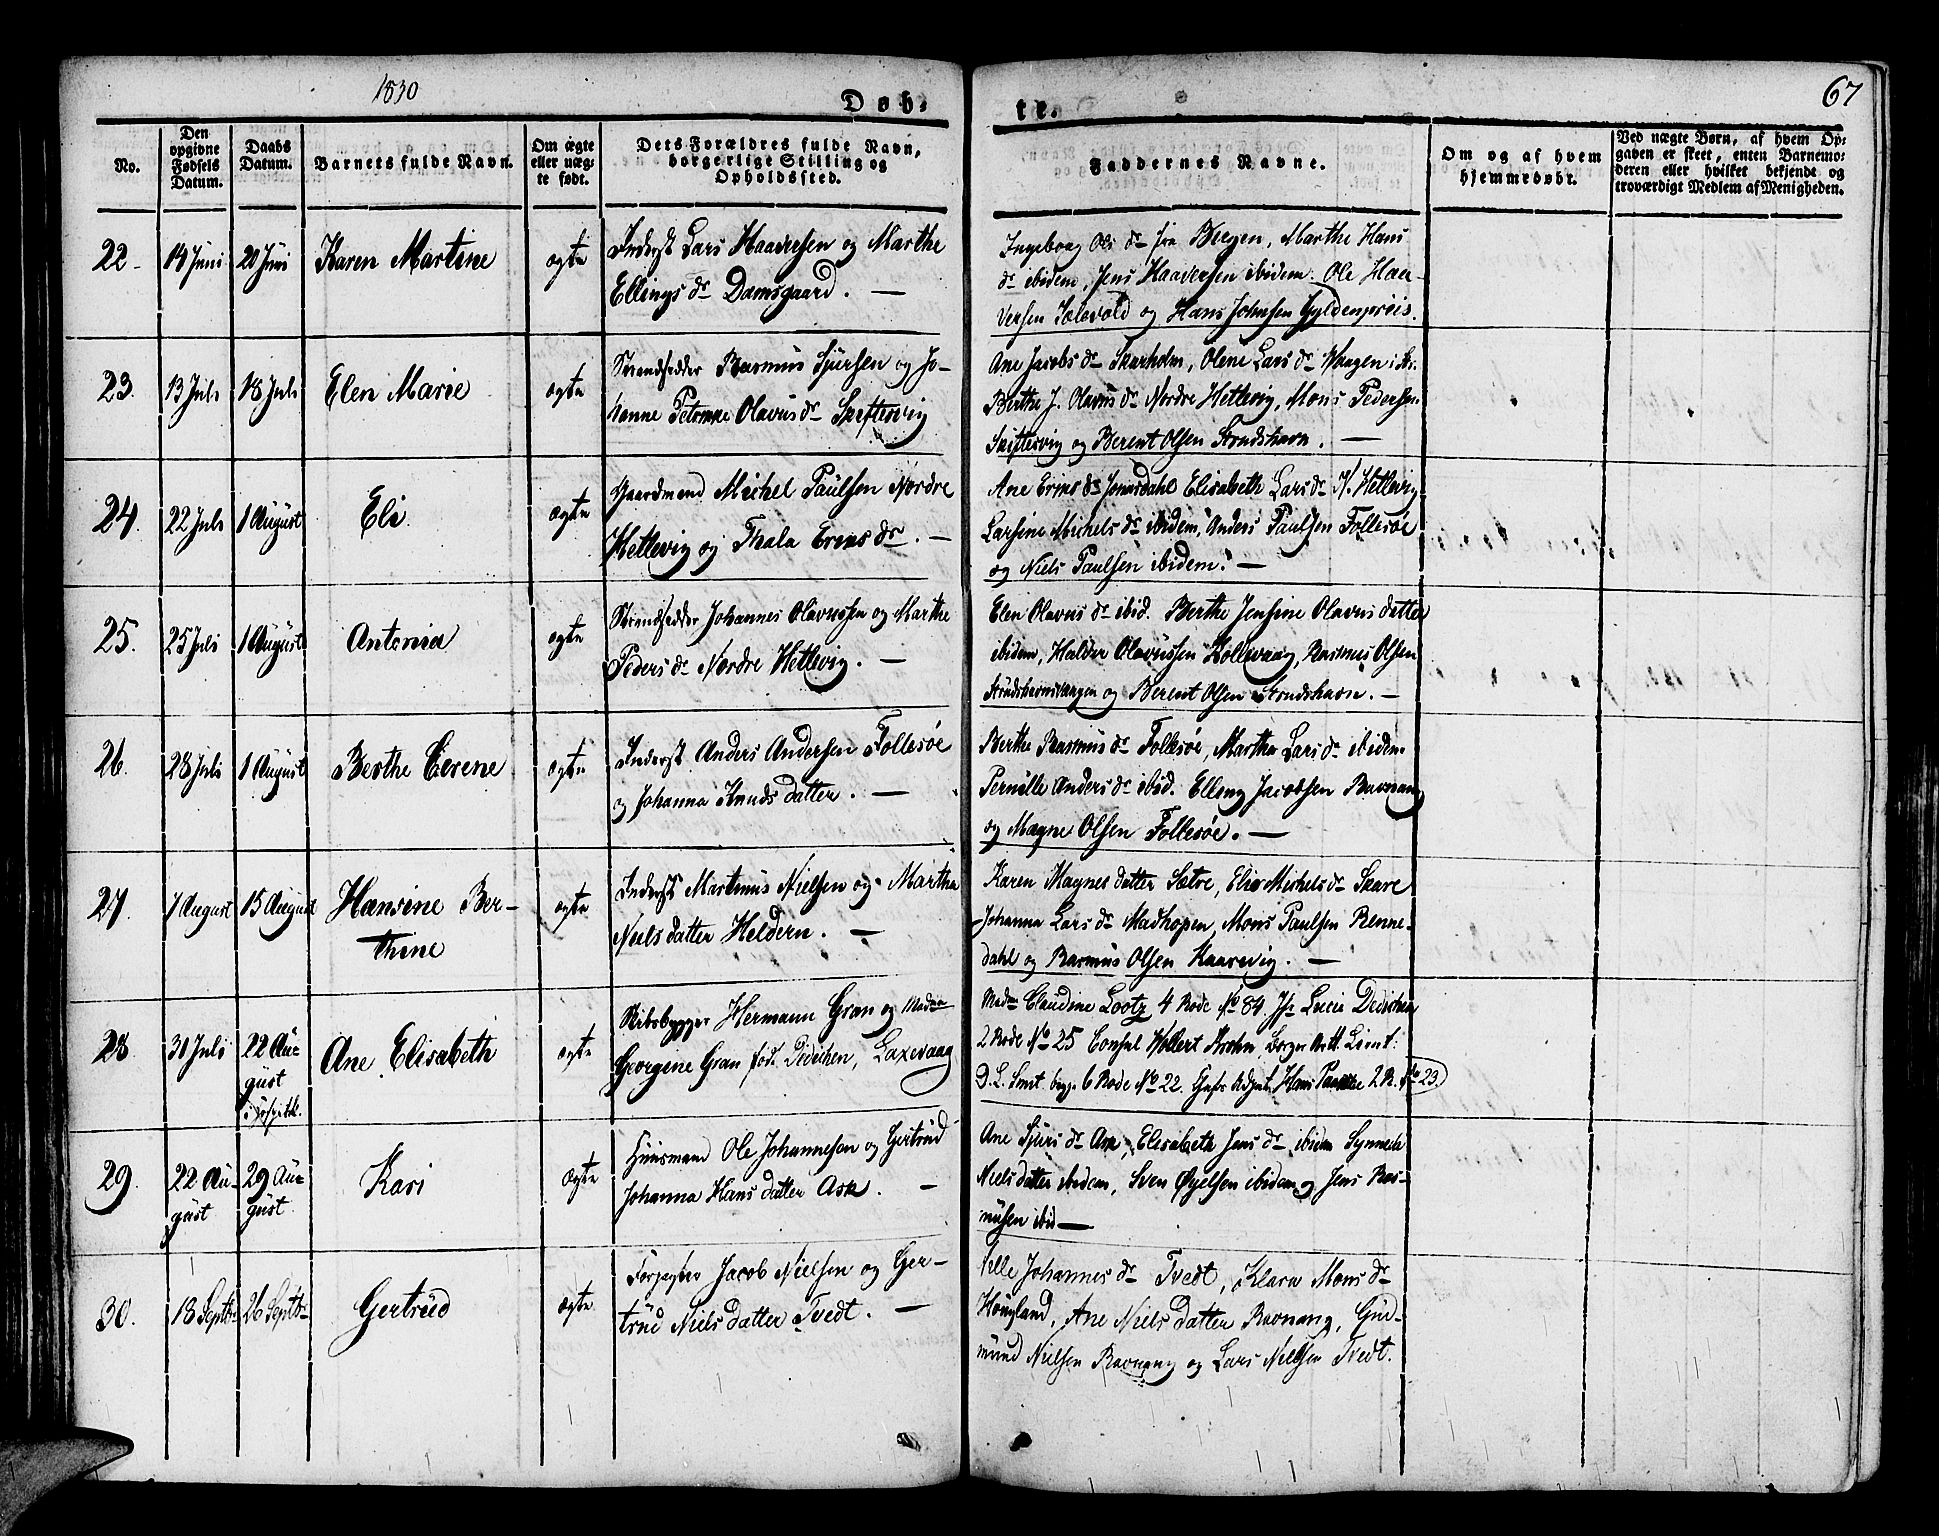 1830
Døb-
te.
67
No.
Den opgivne Fødsels Datum.
Daabs Datum.
Barnets fulde Navn.
Om ægte eller uæg-te født.
Dets Forældres fulde Navn, borgerlige Stilling og Opholdssted.
Faddernes Navne.
Om og af hvem hjemmedøbt.
Ved uægte Børn, af hvem Op-gaven er skeet, enten Barnemo-deren eller hvilket bekjende og troværdigt Medlem af Menigheden.
22 -
14 Juni
20 Juni
Karen Martine
ægte
Inderst Lars Haaversen og Marthe
Ellings dr Damsgaard. —
Ingeborg Ols dr fra Bergen, Marthe Hans
dr ibidem, Jens Haaversen ibidem. Ole Haa-
versen og Hans Johnsen Gyldenpriis.
23.
13 Juli
18 Juli
Elen Marie
ægte
Strandsidder Rasmus Sjursen og Jo-
hanne Petrine Olavus dr Skiftesvig
Ane Jacobs dr Skarholm, Olene Lars dr Vaagen i
Berthe J. Olavus dr Nordre Hetlevig, Mons Pedersen
Skiftesvig og Berent Olsen Strudshavn. —
24.
22 Juli
1 August
Eli
ægte
Gaardmand Michel Paulsen Nordre
Hetlevig og Thala Erics dr. —
Ane Erics dr Jonasdahl Elisabeth Lars dr N. Hetlevig
Larsine Michels dr ibidem, Anders Paulsen Follesøe
og Niels Paulsen ibidem. —
25.
25 Juli
1 August
Antonia
ægte
Strandsidder Johannes Olavussen og Marthe
Peders dr Nordre Hetlevig. —
Elen Olavus dr ibid. Berthe Jensine Olavus datter
ibidem, Haldor Olavussen Kollevaag, Rasmus Olsen
Strudshavnsvaagen og Berent Olsen Strudshavn. —
26.
28 Juli
1 August
Berthe Cerene
ægte
Inderst Anders Andersen Follesøe
og Johanna Knuds datter. —
Berthe Rasmus dr Follesøe, Martha Lars dr ibidem
Pernille Anders dr ibid. Elling Jacobsen Ravnang
og Magne Olsen Follesøe. —
27.
7 August
15 August
Hansine Ber-
thine
ægte
Inderst Martinus Nielsen og Martha
Niels datter Heldern. —
Karen Magnes datter Sætre, Eli Michels dr Skare
Johanna Lars dr Madhopen, Mons Paulsen Renne-
dahl og Rasmus Olsen Kaarevig. —
28
30 Juli
22 Au-
gust
i Hospitl.
Ane Elisabeth
ægte
Skibsbygger Hermann Gran og Madme
Georgine Gran fød Didichen, Laxevaag
Madm Claudine Lootz 4 Rode No 84. Jfr Lucie Dedichen
2 Rode No 25 Consul Wollert Krohn, Borger Lieut:
D. L. Smit 6 Rode No 22. Hans 2 R. No 23.
29.
22 Au-
gust
29 Au-
gust
Kari
ægte
Huusmand Ole Johannesen og Gertrud
Johanna Hans datter Ask. —
Ane Sjurs dr Ask, Elisabeth Jens dr ibidem Synneda
Niels datter ibidem, Sven Øyelsen ibidem og Jens Ras-
musen ibid —
30.
18 Septbr
26 Septbr
Gertrud
ægte
Forpagter Jacob Nielsen og Ger-
trud Niels datter Tvedt. —
Nille Johannes dr Tvedt, Klara Mons dr
Hougland, Ane Niels datter Ravnang, Gud-
mund Nielsen Ravnang og Lars Nielsen Tvedt.